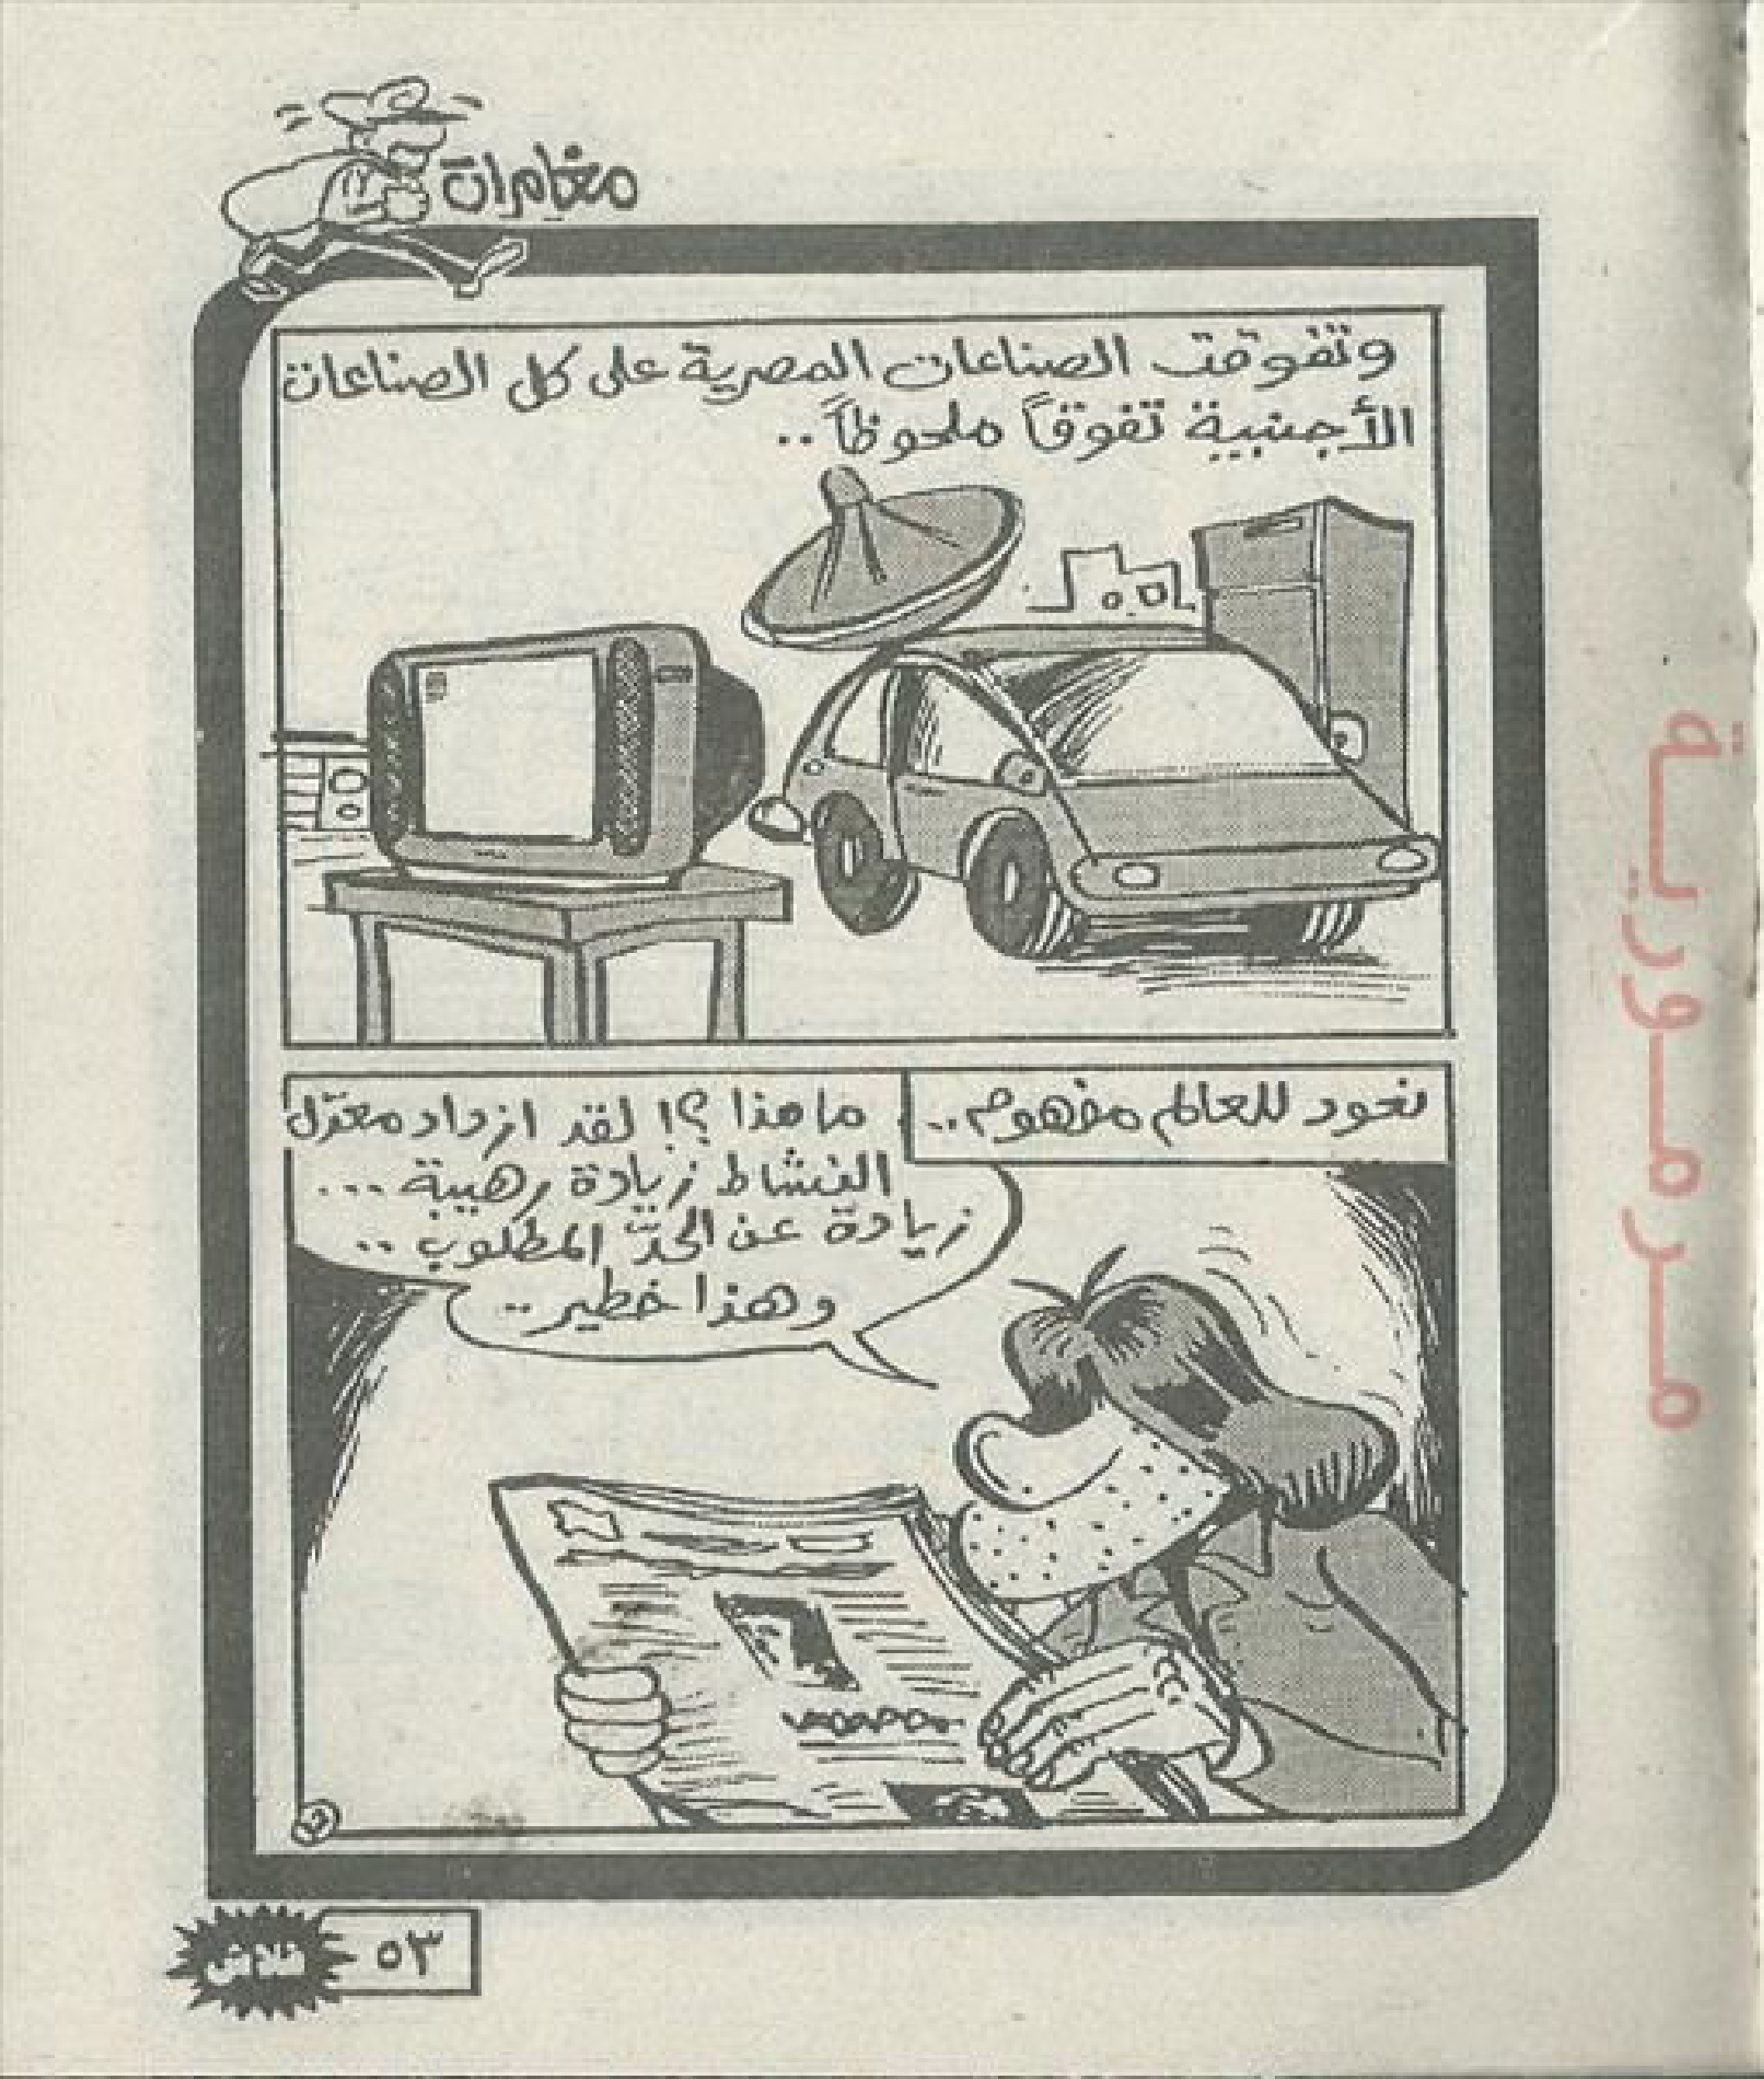 مغامرات
وتفوقت الصناعات المصرية على كل الصناعات
الأجنبية تفوقاً ملحوظاً..
نعود للعالم مفهوم..
ما هذا ؟! لقد ازداد معدّل
النشاط زيادة رهيبة...
زيادة عن الحدّ المطلوب..
وهذا خطير..
٥٣
فلاش
مرمورية